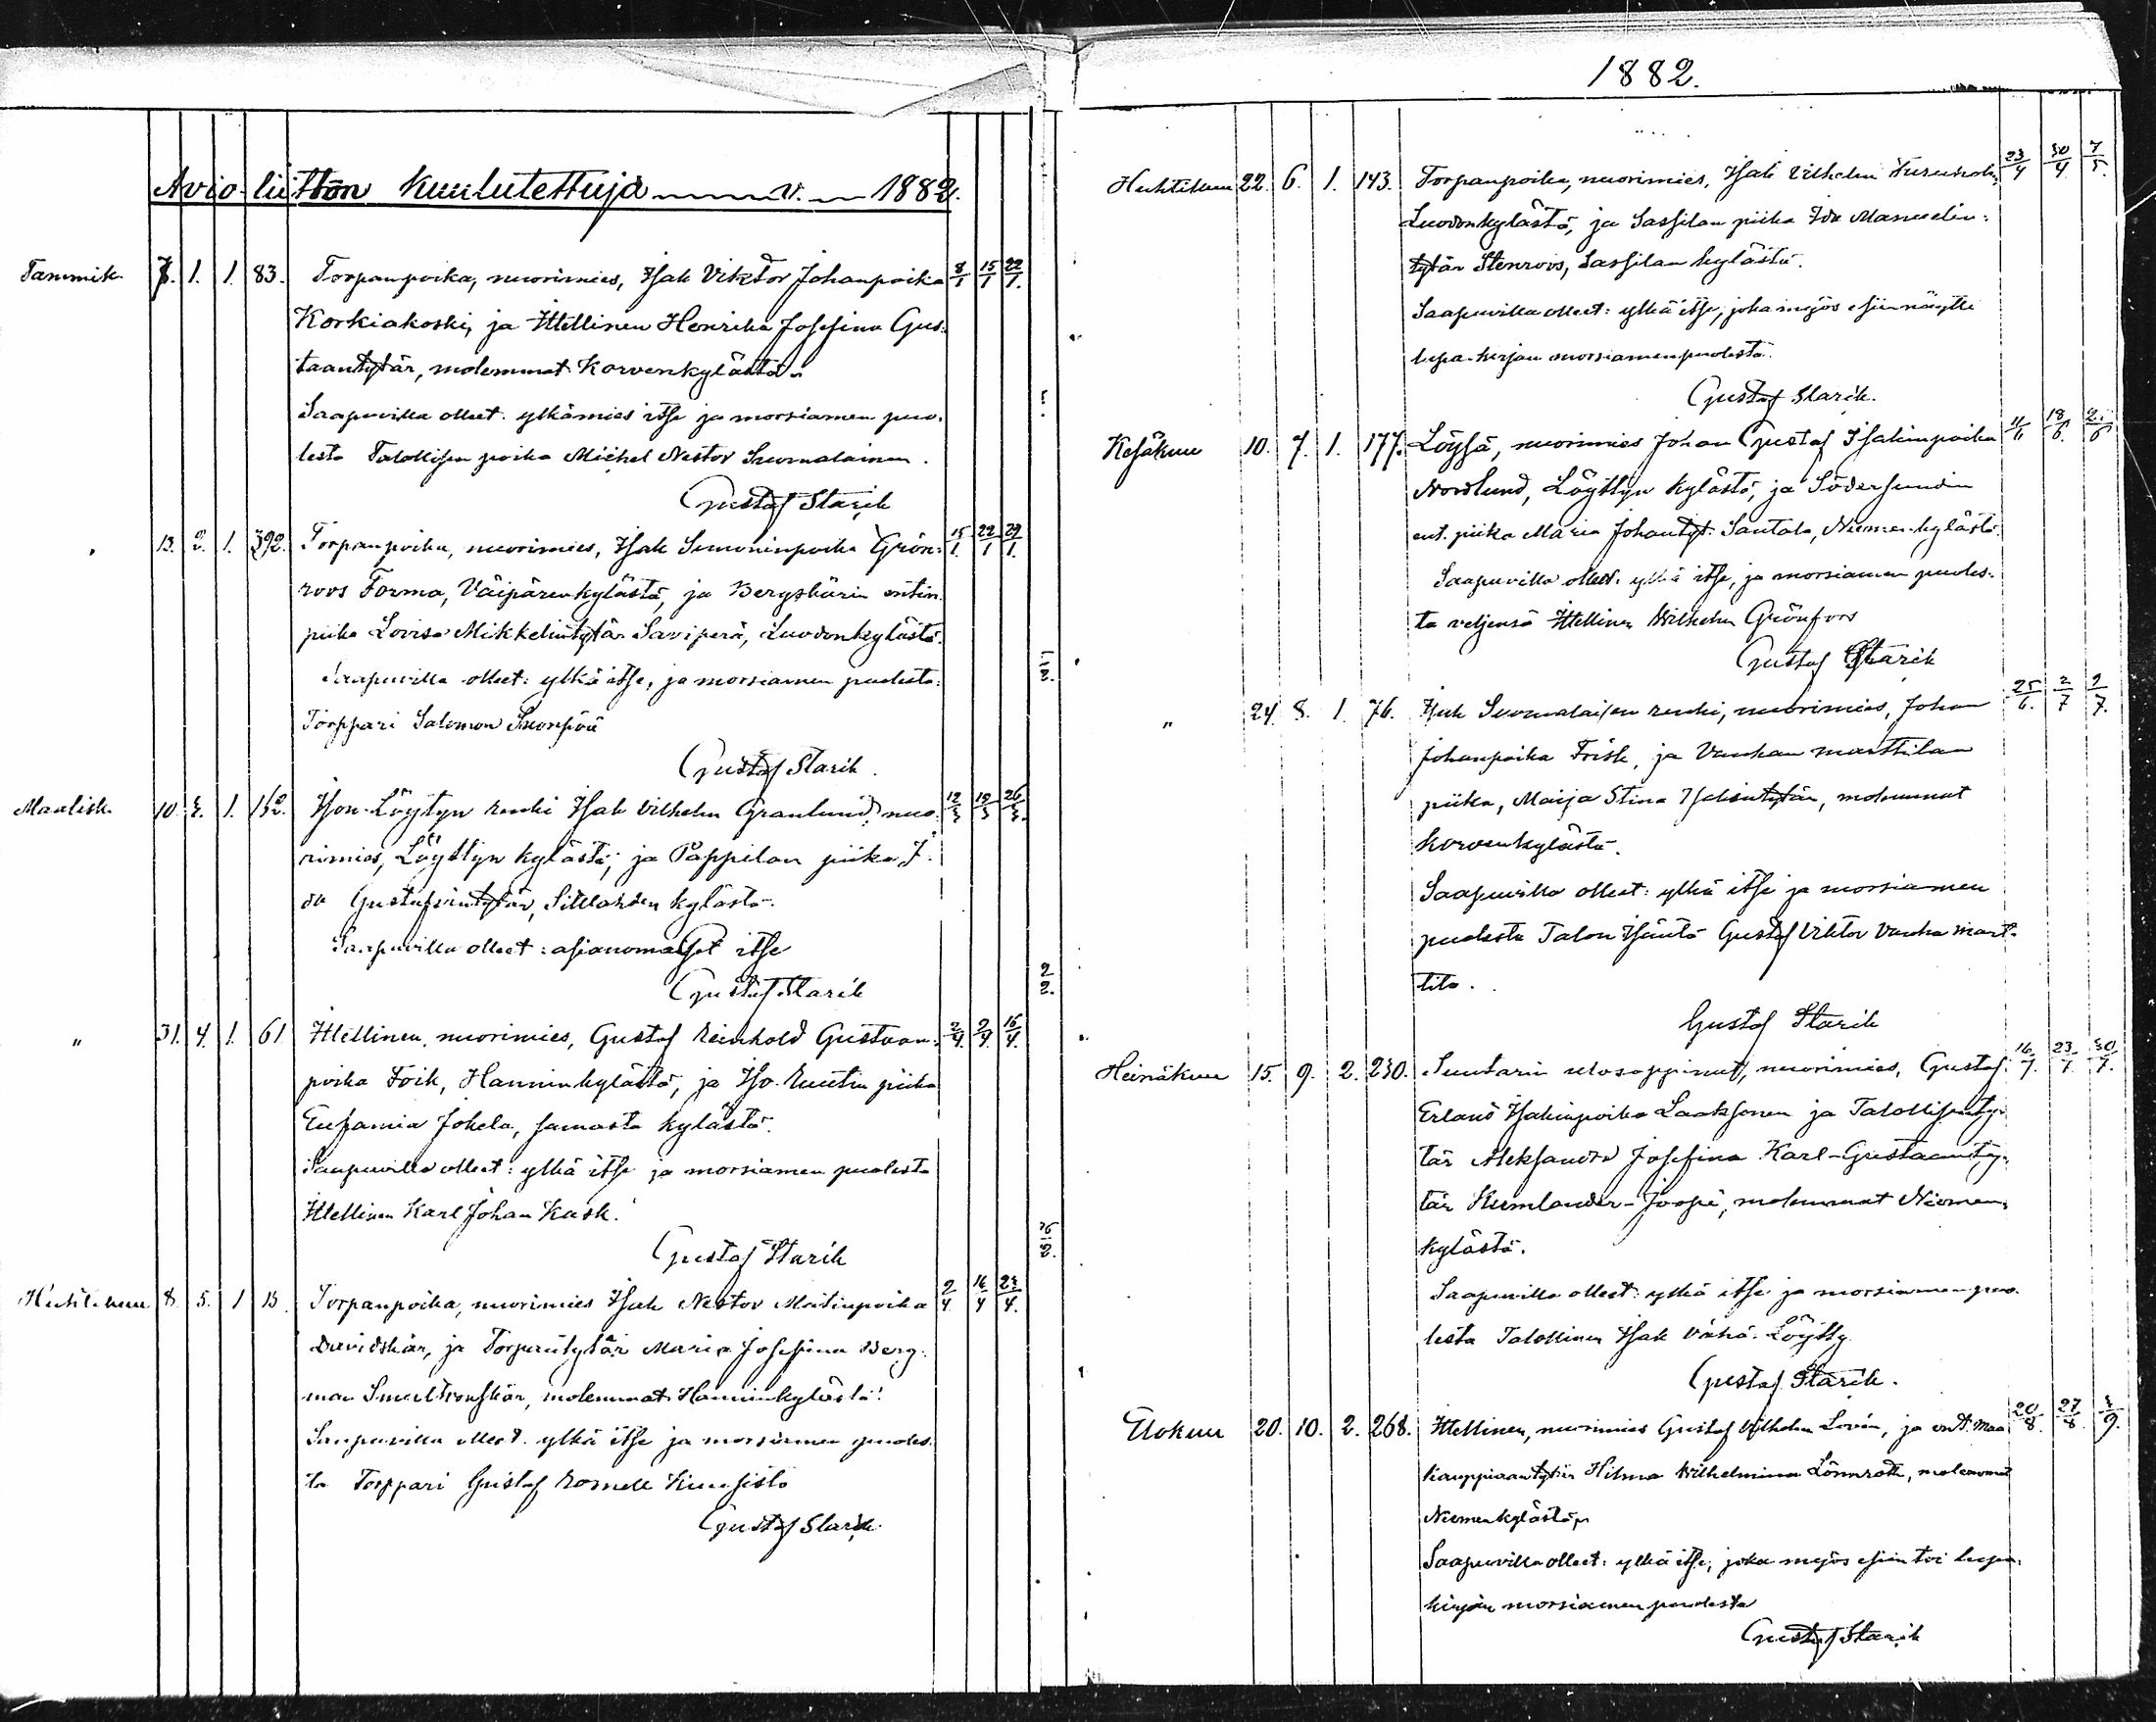 Avio-liittoon Kuulutettuja v. 1882.
Tammik. 7. 1. 1. 83. Torpanpoika, nuorimies, Isak Viktor Johanpoika 8/1 15/1 22/1.
Korkiakoski, ja Ittellinen Henrika Josefina Gus-
taantytär, molemmat Korvenkylästä.
Saapuvilla olleet: ylkämies itse ja morsiamen puo-
lesta Talollisen poika Michel Nestor Suomalainen.
Gustaf Starik
" 13. 2. 1. 392. Torpanpoika, nuorimies, Isak Simoninpoika Grön- 15/1. 22/1 29/1.
roos Forma, Väipärenkylästä, ja Bergskärin entin.
piika Lovisa Mikkelintytär Saviperä, Luodonkylästä.
Saapuvilla olleet: ylkä itse, ja morsiamen puolesta:
Torppari Salomon Suonpää
Gustaf Starik.
Maalisk. 10. 3. 1. 152. Ison-Löytyn renki Isak Vilhelm Granlund, nuo- 12/3 19/3 26/3.
rimies, Löyttyn kylästä, ja Pappilan piika I-
da Gustafsintytär, Sillahden kylästä.
Saapuvilla olleet: asianomaiset itse
Gustaf Starik
" 31. 4. 1. 61 Ittellinen, nuorimies, Gustaf Reinhold Gustaan- 2/4. 9/4. 16/4.
poika Foik, Hanninkylästä, ja Iso-Ruutin piika
Eufamia Jokela, samasta kylästä.
Saapuvilla olleet: ylkä itse ja morsiamen puolesta
Ittellinen Karl Johan Kask.
Gustaf Starik
Huhtikuu 8. 5. 1 13. Torpanpoika, nuorimies Isak Nestor Matinpoika 9/4. 16/4 23/4.
Davidskär, ja Torpantytär Maria Josefina Berg-
man molemmat Hanninkylästä.
Saapuvilla olleet. ylkä itse ja morsiamen puoles-
ta Torppari Gustaf Romell Kuusisto
Gustaf Starik
1882.
Huhtikuu 22. 6. 1. 143. Torpanpoika, nuorimies, Isak Vilhelm 23/4 30/4 7/5.
Luodonkylästä, ja Sassilan piika Ida Manuelin-
tytär Stenroos, Sassilan kylästä.
Saapuvilla olleet: ylkä itse, joka myös esiin näytti
lupa-kirjan morsiamen puolesta.
Gustaf Starik.
Kesäkuu 10. 7. 1. 177. Löysä, nuorimies Johan Gustaf Isakinpoika 11/6 18/6. 25/6
Nordlund, Löyttyn kylästä, ja Södersundin
ent. piika Maria Johantyt. Santala, Niemenkylästä.
Saapuvilla olleet: ylkä itse, ja morsiamen puoles-
ta veljensä Ittellinen Wilhelm Grönfors
Gustaf Starik
" 24. 8. 1. 76. Isak Suomalaisen renki, nuorimies, Johan 25/6. 2/7 9/7.
Johanpoika Frisk, ja Vanhan marttilan
piika, Maija Stina Isakintytär, molemmat
Korvenkylästä.
Saapuvilla olleet: ylkä itse ja morsiamen
puolesta Talon Isäntä Gustaf Viktor Vanha mart-
tila.
Gustaf Starik
Heinäkuu 15. 9. 2. 230. Suutarin ulosoppinut, nuorimies, Gustaf 16/7. 23/7. 30/7.
Erland Isakinpoika Laaksonen ja Talollisenty-
tär Aleksandra Josefina Karl-Gustaanty-
tär Kumlander-Jooper, molemmat Niemen-
kylästä.
Saapuvilla olleet: ylkä itse ja morsiamen puo-
lesta Talollinen Isak Vähä-Löytty
Gustaf Starik.
Elokuu 20. 10. 2. 268. Ittellinen, nuorimies Gustaf Vilhelm Lovén, ja ent. Maa 20/8. 27/8 3/9.
kauppiaantytär Hilma Wilhelmina Lönnroth, molemmat
Niemenkylästä.
Saapuvilla olleet: ylkä itse, joka myös esiin toi lupa-
kirjan morsiamen puolesta
Gustaf Starik